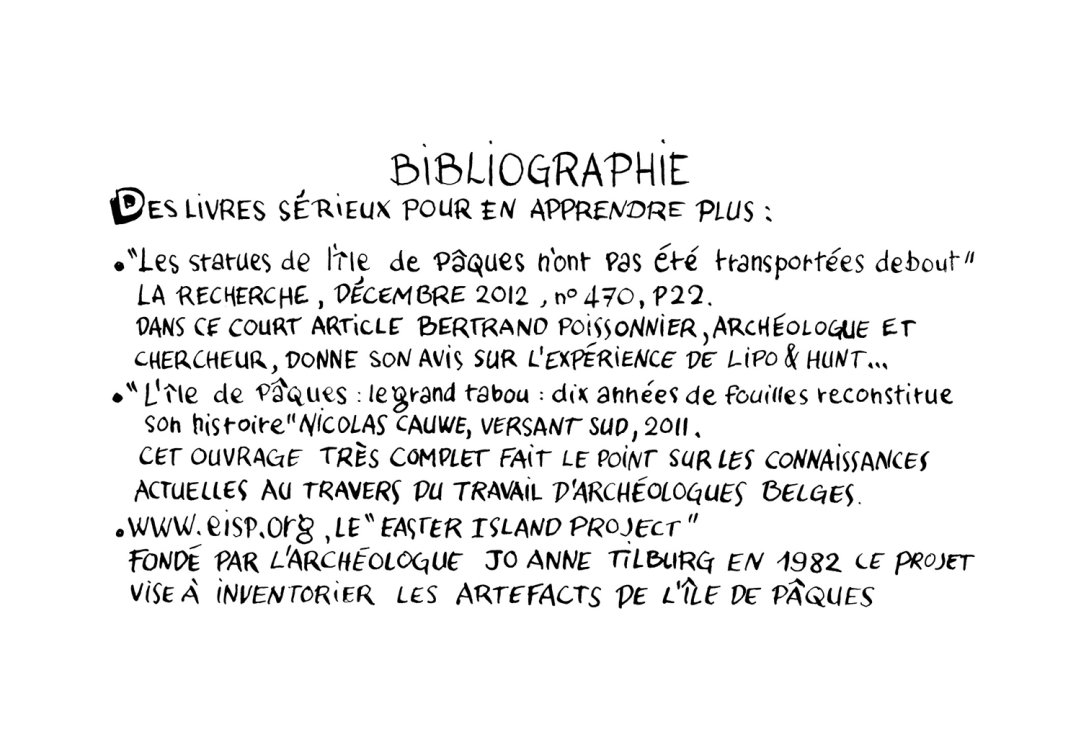 BIBLIOGRAPHIE
DES LIVRES SÉRIEUX POUR EN APPRENDRE PLUS :
• "Les statues de l'île de Pâques n'ont pas été transportées debout"
LA RECHERCHE, DÉCEMBRE 2012, n° 470, P22.
DANS CE COURT ARTICLE BERTRAND POISSONNIER, ARCHÉOLOGUE ET
CHERCHEUR, DONNE SON AVIS SUR L'EXPÉRIENCE DE LIPO & HUNT...
• "L'île de Pâques : le grand tabou : dix années de fouilles reconstitue
son histoire" NICOLAS CAUWE, VERSANT SUD, 2011.
CET OUVRAGE TRÈS COMPLET FAIT LE POINT SUR LES CONNAISSANCES
ACTUELLES AU TRAVERS DU TRAVAIL D'ARCHÉOLOGUES BELGES.
• WWW.eisp.org, LE "EASTER ISLAND PROJECT"
FONDÉ PAR L'ARCHÉOLOGUE JO ANNE TILBURG EN 1982 CE PROJET
VISE À INVENTORIER LES ARTEFACTS DE L'ÎLE DE PÂQUES